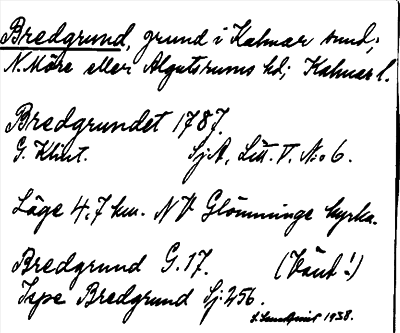 Bredgrund, grund i Kalmar sund;
N. Möre eller Algutsrums hd; Kalmar l.
Bredgrundet 1787.
G. Klint. SjA, Litt. V. No 6.
Läge 4,7 km. NV Glömminge kyrka.
Bredgrund G.17. (Vänt!)
Jspe Bredgrund Sj:256.
1938.